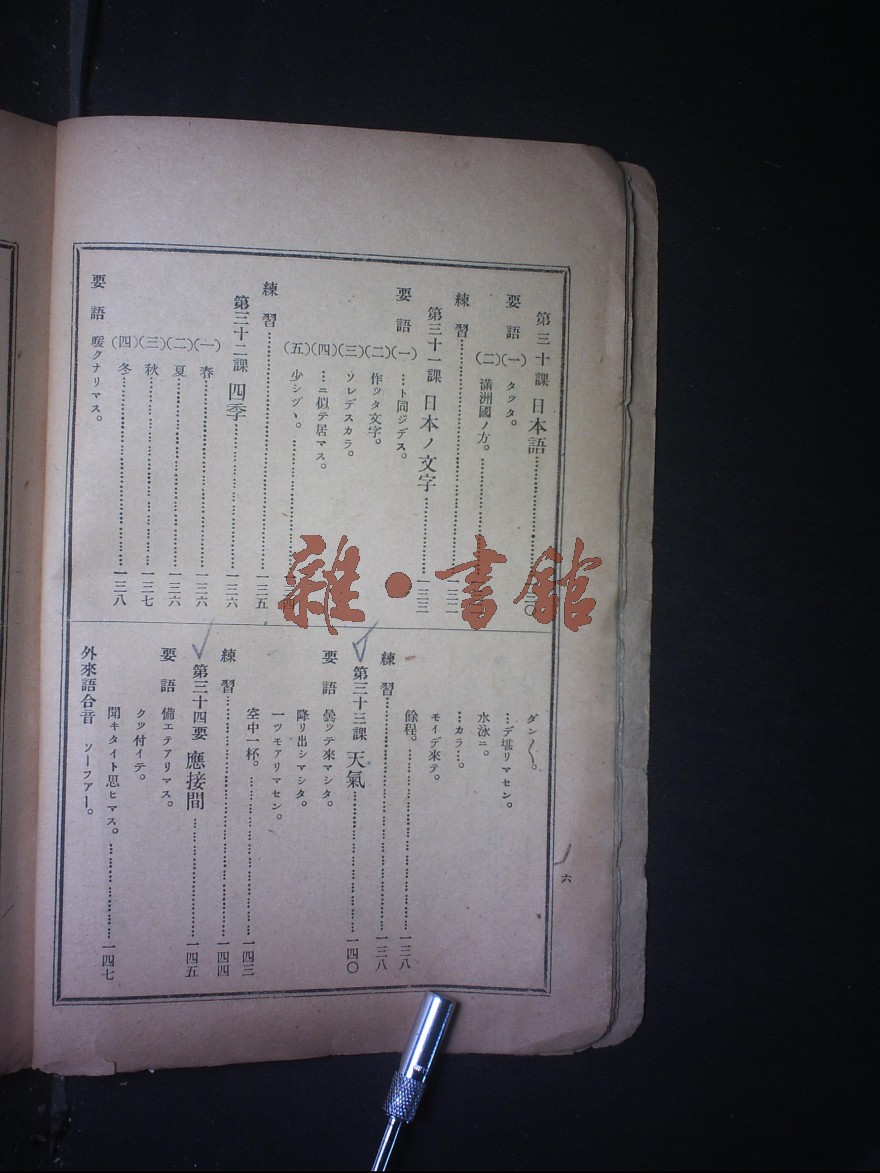 第三十課 日本語
要語(一) タツタ。
(二) 滿洲國ノ方。
練習 一三二
第三十一課 日本ノ文字 一三三
要語(一) …ト同ジデス。
(二) 作ツタ文字。
(三) ソレデスカラ。
(四) …ニ似テ居マス。
(五) 少シヅヽ。
練習 一三五
第三十二課 四季 一三六
(一) 春 一三六
(二) 夏 一三六
(三) 秋 一三七
(四) 冬 一三八
要語 暖クナリマス。
ダン〱。
…デ堪リマセン。
水泳ニ。
…カラ…。
モイデ來テ。
餘程。 一三八
練習 一三八
第三十三課 天氣 一四〇
要語 曇ツテ來マシタ。
降リ出シマシタ。
一ツモアリマセン。
空中一杯。 一四三
練習 一四四
第三十四要 應接間 一四五
要語 備エテアリマス。
クツ付イテ。
聞キタイト思ヒマス。 一四七
外來語合音 ソーフアー。
六
雜·書館